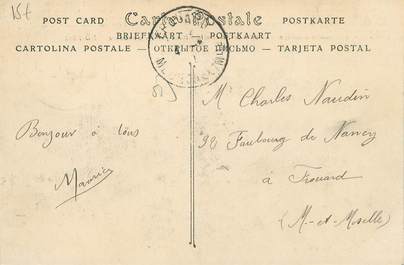 15f
POST CARD Carte Postale POSTKARTE
BRIEFKAART — POSTKAART
CARTOLINA POSTALE — ОТКРЫТОЕ ПИСЬМО — TARJETA POSTAL
Bonjour à tous
Maurice
Mr Charles Naudin
92 Faubourg de Nancy
à Frouard
(M.-et-Moselle)